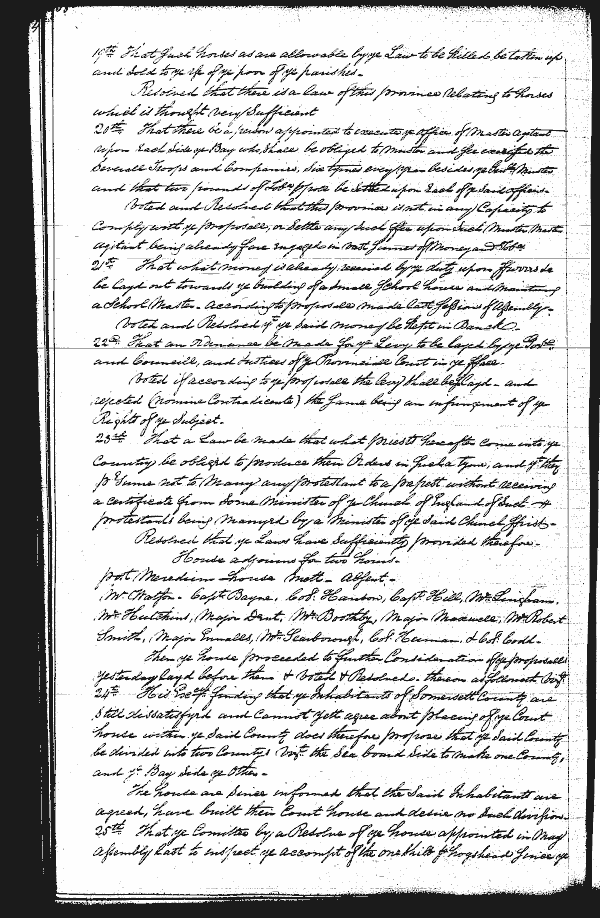 19th That Such horses as are allowable by ye Law to be killed, be taken up
and Sold to ye use of ye poor of ye parishes.
Resolved that there is a law of this province relating to horses
which is thought very Sufficient
20th That there be a person appointed to execute ye office of Muster
upon Each Side ye Bay who Shall be obliged to Muster and the
Severall Troops and Companies, Six tymes every year besides ye Muster
and that two pounds of p poll be Settled upon Each of ye Said officers.
Voted and Resolved that this province is not in any Capacity to
Comply with ye proposall, or Settle any Such fee upon Such Muster Master
being already farre engaged in vast Summes of Money and Tobo.
21st That what money is already received by ye duty upon ffurrs &c
be layd out towards ye building of a small School house and Maintaining
a School Master. According to proposalls made last Session of Assembly.
Voted and Resolved yt ye Said money be kept in Banck.
22d That an Ordinance be made for ye Levy to be layed by ye Govr.
and Councill, and Justices of ye Provinciall Court in ye
Voted if according to ye proposalls the Levy shall be layd. and
rejected (nomine Contradicente) the Same being an infringment of ye
Rights of ye Subject.
23d That a Law be made that what priests hereafter come into ye
Country be obliged to produce their Orders in Such a tyme, and yt they
pr Sume not to Marry any protestant to a papist without receiving
a certificate from Some Minister of ye Church of England of Such
protestants being Marryed by a Minister of ye Said Church ffirst.
Resolved that ye Laws have Sufficiently provided therefore.
House adjourns for two hours.
post Meridiem house mett. Absent.
Mr Watson. Capt Bayne, Col: Hanson, Capt Hill, Mr Lingham,
Mr Hutchins, Major Dent, Mr Boothby, Major Maxwell, Mr Robert
Smith, Major Ennalls, Mr Scarborough, Col & Col: Codd.
Then ye house proceeded to further Consideration of ye proposalls
yesterday layd before them & Voted & Resolved. thereon as followeth Vizt
24th His Excy. finding that ye Inhabitants of Somersett County are
Still dissatisfyed and Cannot yett agree about placing of ye Court
house within ye Said County does therefore propose that ye Said County
be divided into two Countys Vizt. the Sea board Side to make one County,
and ye Bay Side ye Other.
The house are Since informed that the Said Inhabitants are
agreed, have built their Court house and desire no Such division.
25th That ye Comittee by a Resolve of ye house appointed in May
Assembly last to inspect ye accompt of the one Shill: p hogshead Since ye